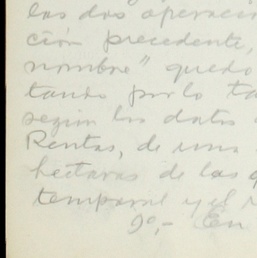 las dos operacio
ción precedente,
nombre" quedo
tando por lo ta
según los datos
Rentas, de una
hectaras de las q
temporal y el r
9º,- En